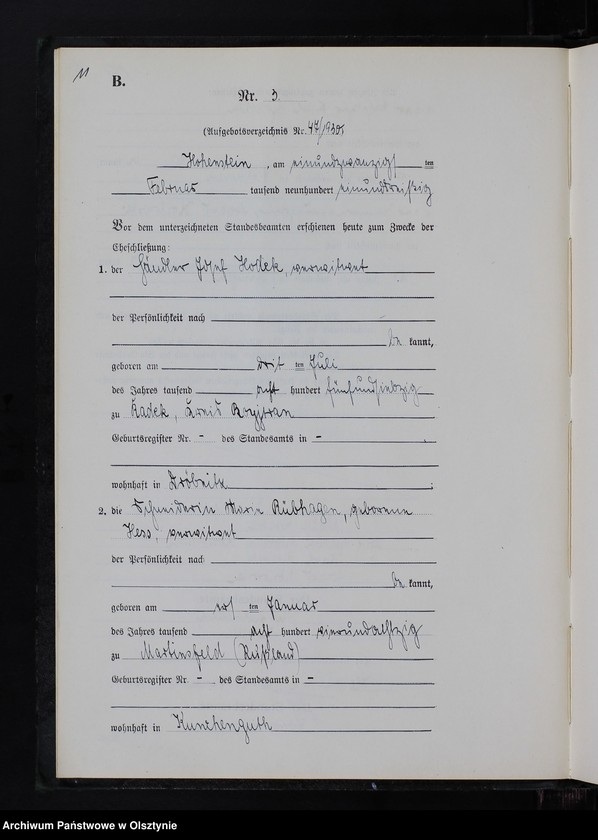 11
B.
Nr. 3.
(Aufgebotsverzeichnis Nr. 47/1930)
Hohenstein, am einundzwanzigs ten
Februar tausend neunhundert einunddreißig
Vor dem unterzeichneten Standesbeamten erschienen heute zum Zwecke der
Eheschließung:
1. der Händler Josef Kodek, verwitwet
der Persönlichkeit nach
be kannt,
geboren am drit ten Juli
des Jahres tausend acht hundert fünfundsiebzig
zu Radek, Kreis
Geburtsregister Nr. - des Standesamts in -
wohnhaft in Dröbnitz ;
2. die Schneiderin Marie Rübhagen, geborene
Hess, verwitwet
der Persönlichkeit nach
be kannt,
geboren am ers ten Januar
des Jahres tausend acht hundert vierundachtzig
zu Martinsfeld (Rußland)
Geburtsregister Nr. - des Standesamts in -
wohnhaft in Kunchenguth
Archiwum Państwowe w Olsztynie